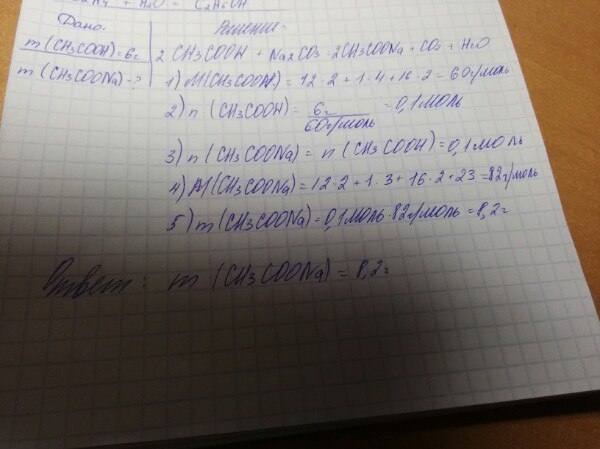 C2H4 + H2O = C2H5OH
Дано:
Решение:
m (CH3COOH)=6г
m (CH3COONa)-?
2 CH3COOH + Na2CO3=2CH3COONa + CO2 + H2O
1) M(CH3COOH) = 12·2+1·4+16·2=60г/моль
2) n (CH3COOH) = 6г/60г/моль = 0,1моль
3) n (CH3COONa) = n (CH3COOH)=0,1моль
4) M(CH3COONa)=12·2+1·3+16·2+23=82г/моль
5) m (CH3COONa)=0,1моль·82г/моль=8,2г
Ответ: m (CH3COONa) = 8,2г